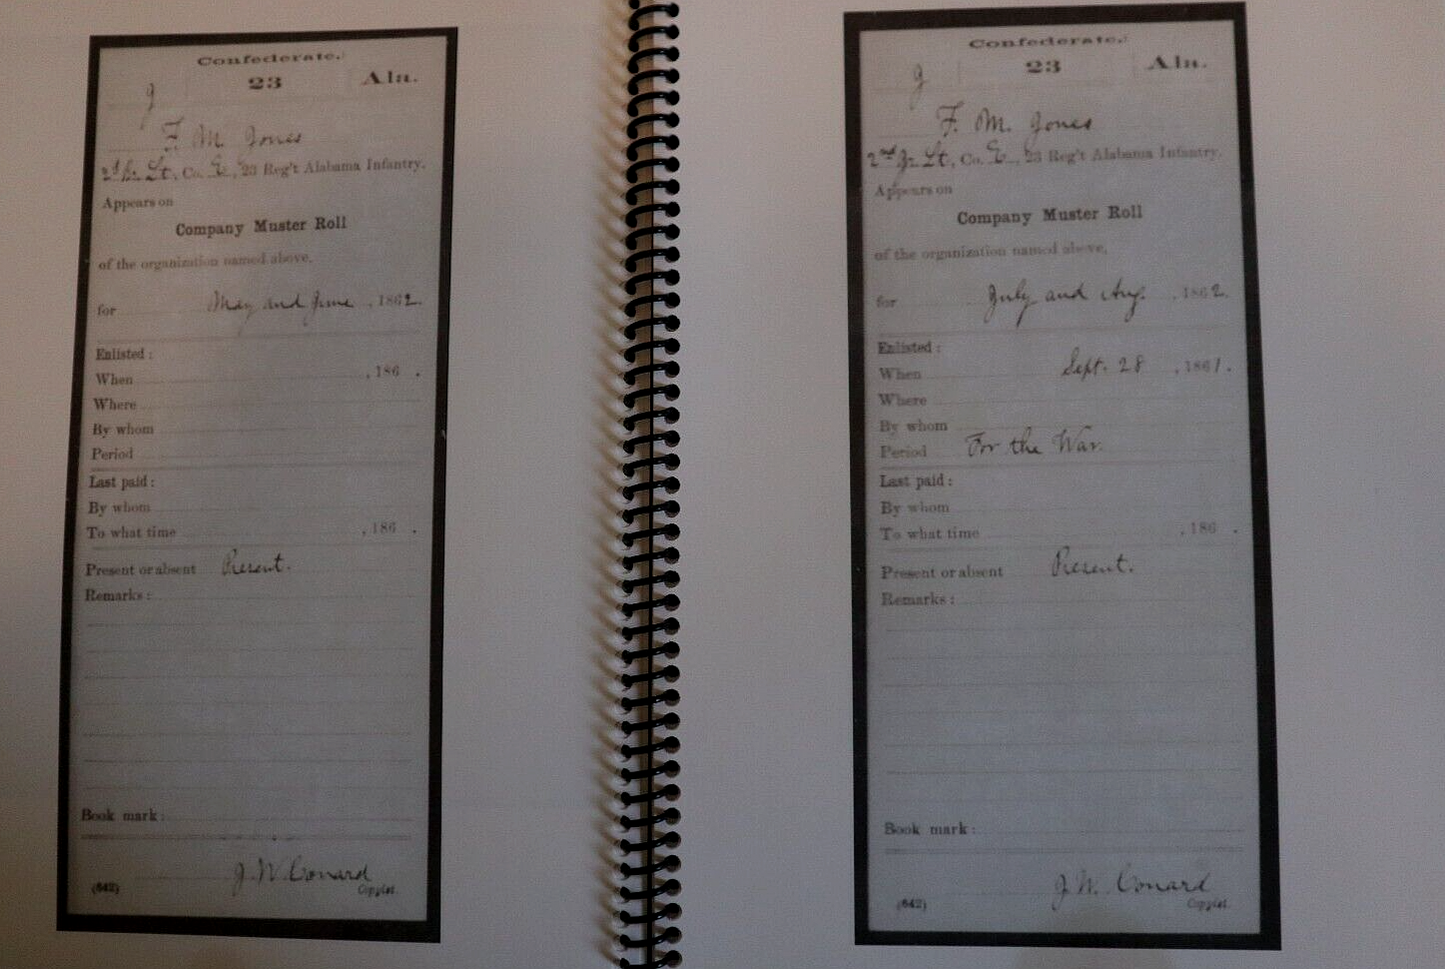 Confederate.
J 23 Ala.
F. M. Jones
2d Jr. Lt., Co. E, 23 Reg't Alabama Infantry.
Appears on
Company Muster Roll
of the organization named above,
for May and June, 1862.
Enlisted:
When , 186 .
Where
By whom
Period
Last paid:
By whom
To what time , 186 .
Present or absent Present.
Remarks:
Book mark:
J. W. Conard
(642) Copyist.
Confederate.
J 23 Ala.
F. M. Jones
2nd Jr. Lt, Co. E, 23 Reg't Alabama Infantry.
Appears on
Company Muster Roll
of the organization named above,
for July and Aug. , 1862.
Enlisted:
When Sept. 28 , 1861.
Where
By whom
Period For the War.
Last paid:
By whom
To what time , 186 .
Present or absent Present.
Remarks:
Book mark:
J. W. Conard
(642) Copyist.